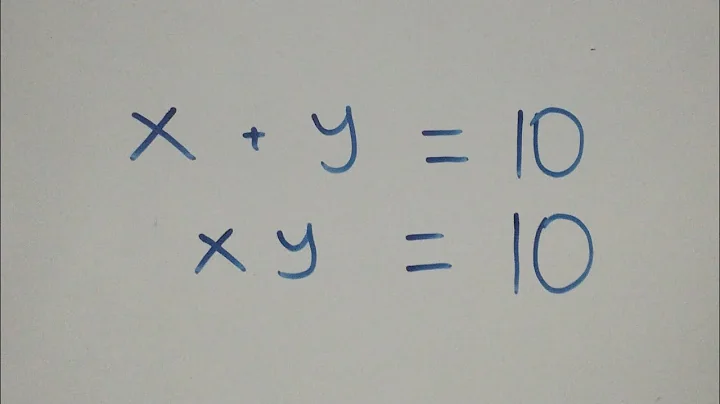 x + y = 10
xy = 10